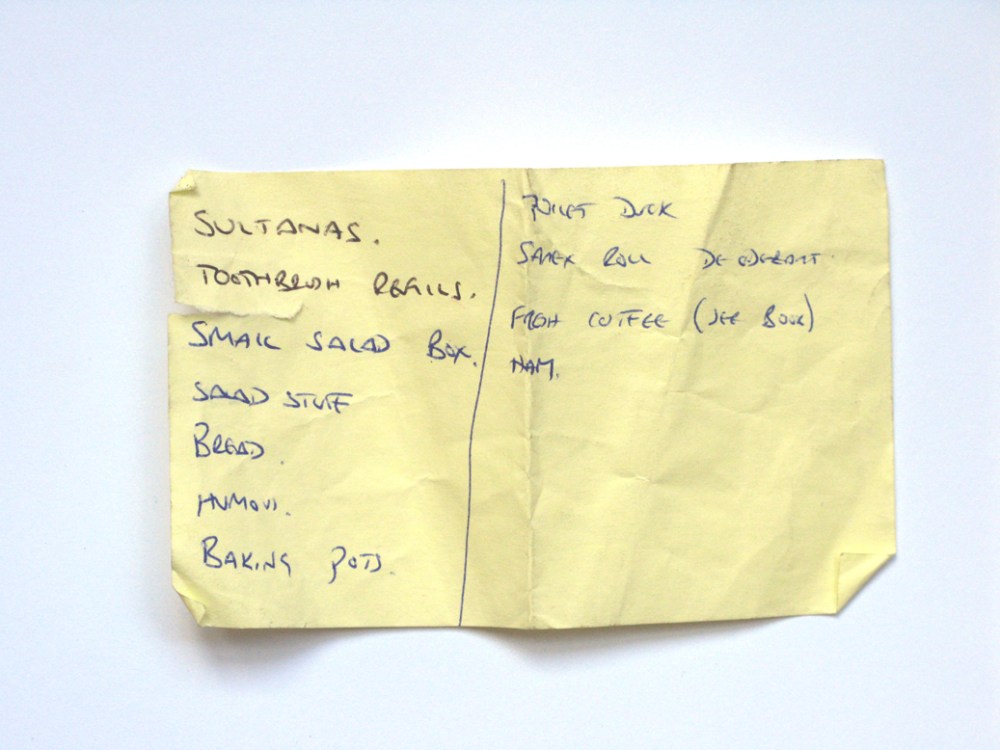 SULTANAS.
TOOTHBRUSH REFILLS.
SMALL SALAD BOX.
SALAD STUFF
BREAD.
HUMOUS.
BAKING POTS.
TOILET DUCK
SANEX ROLL DEODERANT.
FRESH COFFEE (SEE BOOK)
HAM.